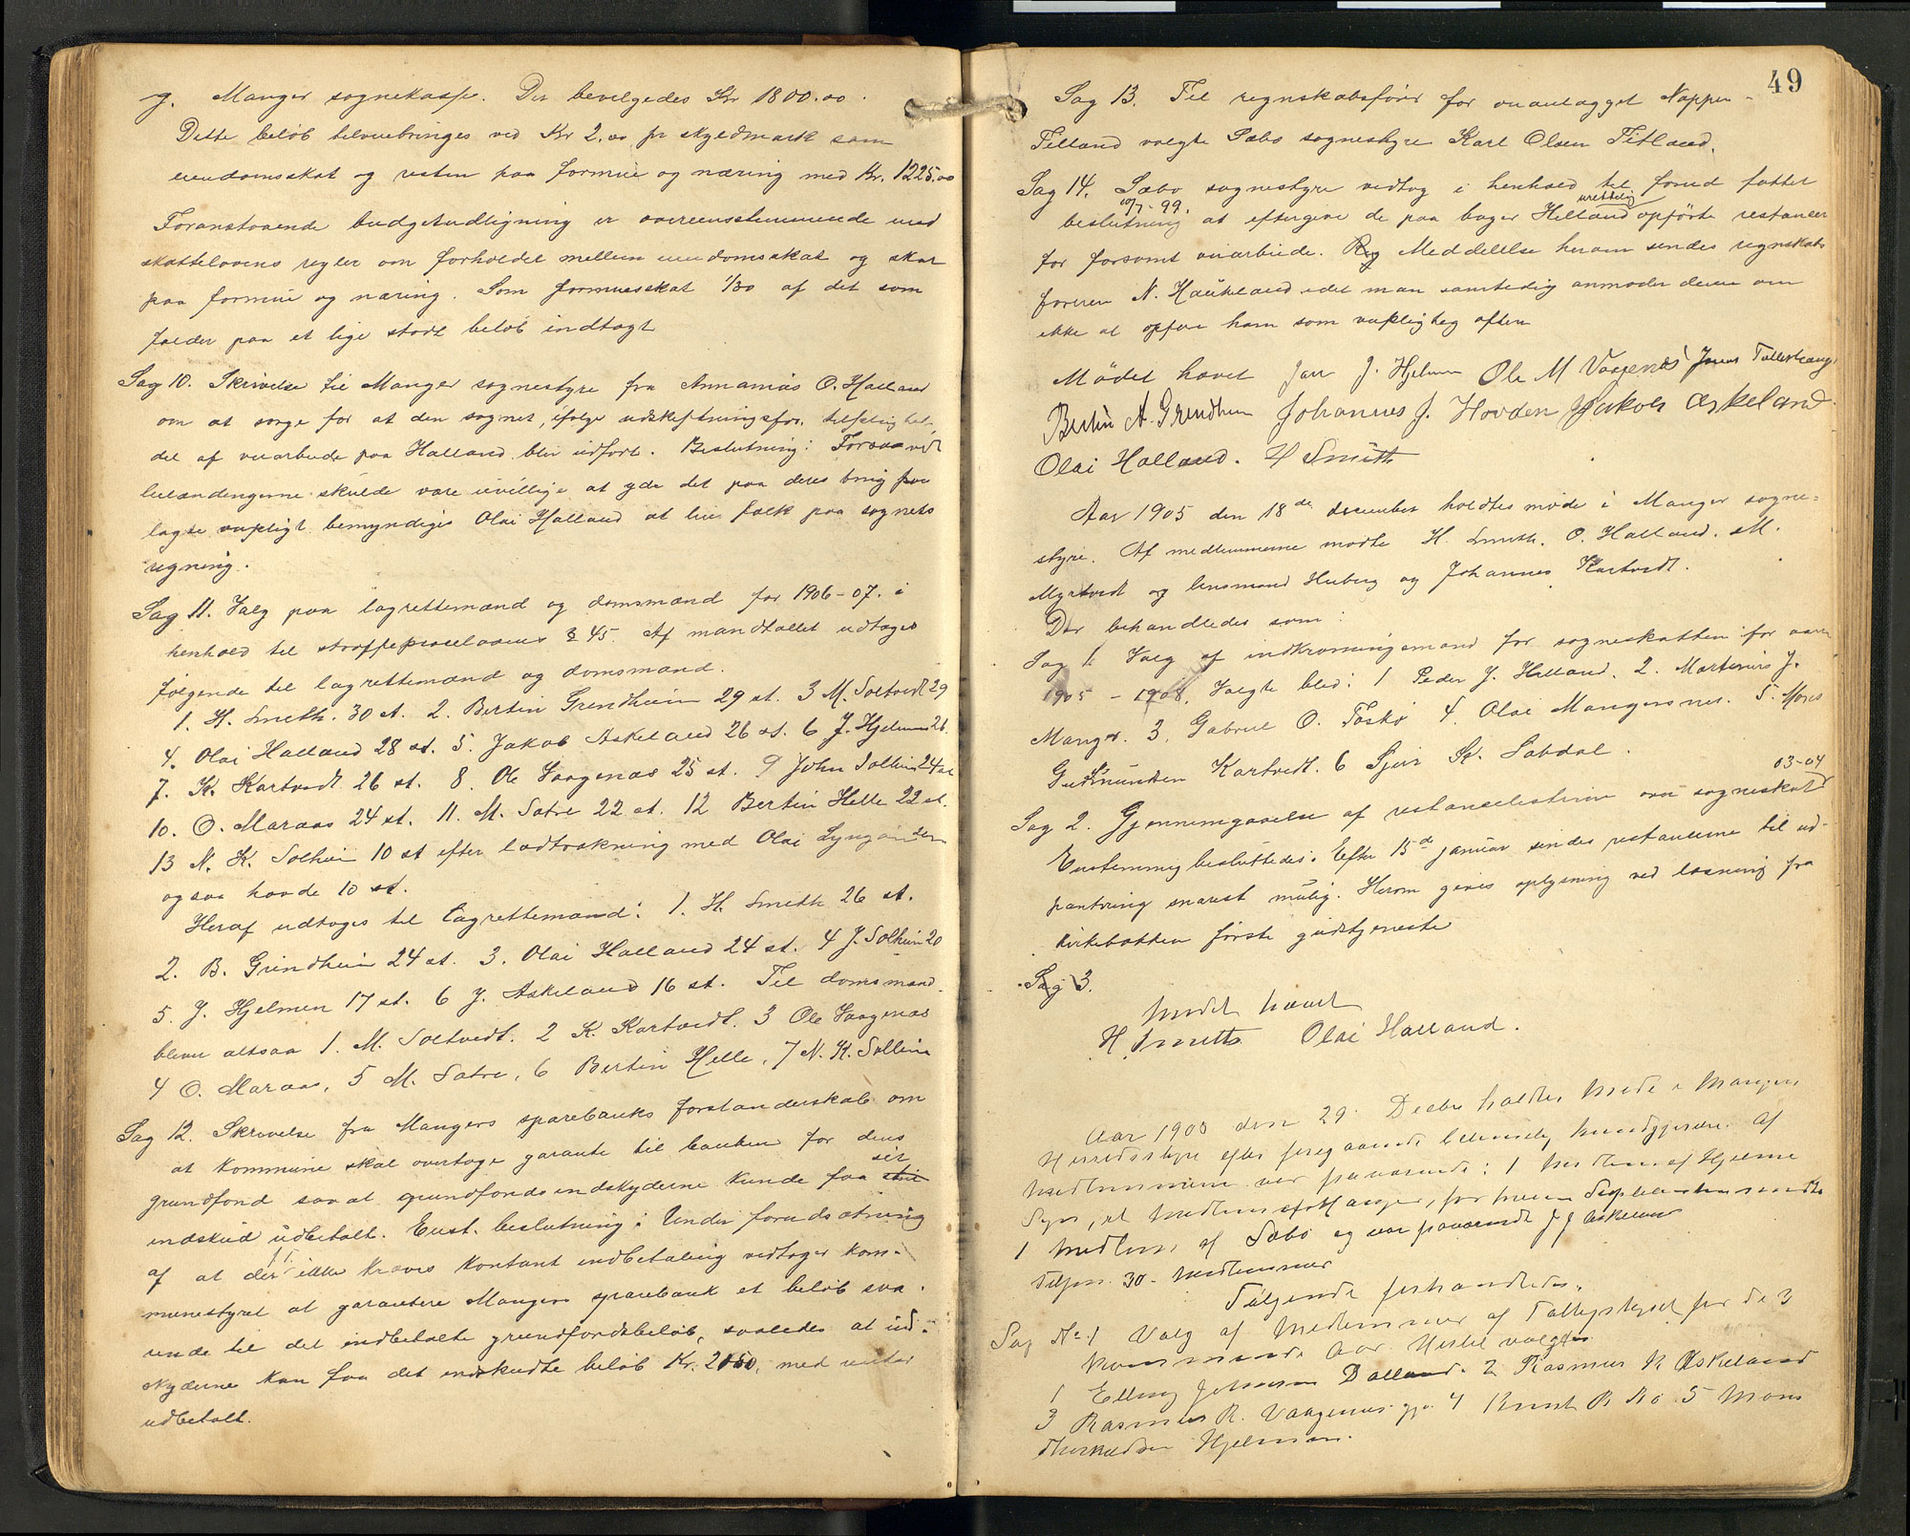 g. Manger sognekasse. Der bevelgedes Kr 1800.00.
Dette beløb tilveiebringes ved Kr 2.00 pr skyldmark som
eiendomsskat og resten paa formue og næring med Kr. 1225.00
Foranstaaende budgetudligning er overensstemmende med
skattelovens regler om forholdet mellem eiendomsskat og skat
paa formue og næring. Som formuesskat 1/30 af det som
falder paa et lige stort beløb indtægt
Sag 10. Skrivelse til Manger sognestyre fra Annanias O. Halland
om at sørge for at den sognet, ifølge udskiftningsfor.
del af veiarbeide paa Halland blir udført. Beslutning: Forsaavidt
leilændingerne skulde være uvillige at yde det paa deres brug
lagte arbeide bemyndiges Olai Halland at leie folk paa sognets
regning.
Sag 11. Valg paa lagrettemænd og domsmænd for 1906-07. i
henhold til straffeproceslovens § 45. Af mandtallet udtages
følgende til lagrettemænd og domsmænd.
1. H. Smith. 30 st. 2. Bertin Grindheim 29 st. 3 M. Soltvedt 29
4. Olai Halland 28 st. 5. Jakob Askeland 26 st. 6 J. Hjelmen 26
7. K. Kartvedt 26 st. 8. Ole Vaagenæs 25 st. 9 John Solheim 24 st
10. O. Maraas 24 st. 11. M. Sætre 22 st. 12 Bertin Helle 22 st.
13 N. K. Solheim 10 st efter lodtrækning med Olai
ogsaa havde 10 st.
Heraf udtoges til Lagrettemænd: 1. H. Smith 26 st.
2. B. Grindheim 24 st. 3. Olai Halland 24 st. 4 J. Solheim 20
5. J. Hjelmen 17 st. 6 J. Askeland 16 st. Til domsmænd
bleve altsaa 1. M. Soltvedt. 2 K. Kartvedt. 3 Ole Vaagenæs
4 O. Maraas, 5 M. Sætre, 6 Bertin Helle, 7 N. K. Solheim
Sag 12. Skrivelse fra Mangers sparebanks forstanderskab om
at kommune skal overtage garanti til banken for dens
grundfond saa at grundfondsindskyderne kunde faa sit
indskud udbetalt. Enst. beslutning: Under forudsætning
af at der ikke kræves kontant indbetaling vedtager kom-
munestyret at garantere Mangers sparebank et beløb sva-
rende til det indbetalte grundfondsbeløb, saaledes at ind-
skyderne kan faa det indskudte beløb Kr. 2050, med renter
udbetalt.
49
Sag 13. Til regnskabsfører for veianlægget Nappen-
Titland valgte Sæbø sognestyre Karl Olsen Titland.
Sag 14. Sæbø sognestyre vedtog i henhold til forud fattet
10/7-99. urettelig
beslutning at eftergive de paa bager Helland opførte restancer
for forsømt veiarbeide. Meddelelse herom sendes regnskabs
føreren N. Haukeland idet man samtidig anmoder denne om
ikke at opføre ham som veipligtig oftere
Mødet hævet Jon J. Hjelmen Ole M Vaagenæs
Bertin A. Grindheim Johannes J. Hovden Jakob Askeland.
Olai Halland. H Smith
Aar 1905 den 18de december holdtes møde i Manger sogne-
styre. Af medlemmerne mødte H. Smith. O. Halland. M.
Myrtvedt og lensmand Huberg og Johannes Kartvedt.
Der behandledes som:
Sag 1. Valg af indkrævningsmænd for sogneskatten for aarene
1905 – 1908. Valgte blev: 1 Peder J. Halland. 2. Martinius J.
Manger. 3. Gabriel O. Toskø 4. Olai Mangersnes. 5. Mons
Gudmundsen Kartvedt. 6 Sjur K. Sabdal.
03-04
Sag 2. Gjennemgaaelse af restancelisterne over sogneskat
Enstemmig besluttedes: Efter 15de januar sendes restancerne til ud-
pantning snarest mulig. Herom gives oplysning ved læsning fra
kirkebakken første gudstjeneste
Sag 3.
Mødet hævet
H. Smith Olai Halland.
Aar 1905 den 29. Decbr holdtes Møde i Mangers
Herredsstyre efter foregaaende lovmæssig kundgjørelse. Af
Medlemmerne var fraværende: 1 Medlem af Hjelme
Sogn, et Medlem af Manger, for hvem Suppleanten mødte
1 Medlem af Sæbø og var fraværende J J Askeland
Tilsm. 30 - Medlemmer
Følgende forhandledes.
Sag No. 1 Valg af Medlemmer af for de 3
kommende Aar. Hertil valgtes
1 Elling Johnsen Dalland. 2 Rasmus K Askeland
3 Rasmus R. Vaagenes 4 Knut R Bø 5 Mons
Hjelmen.